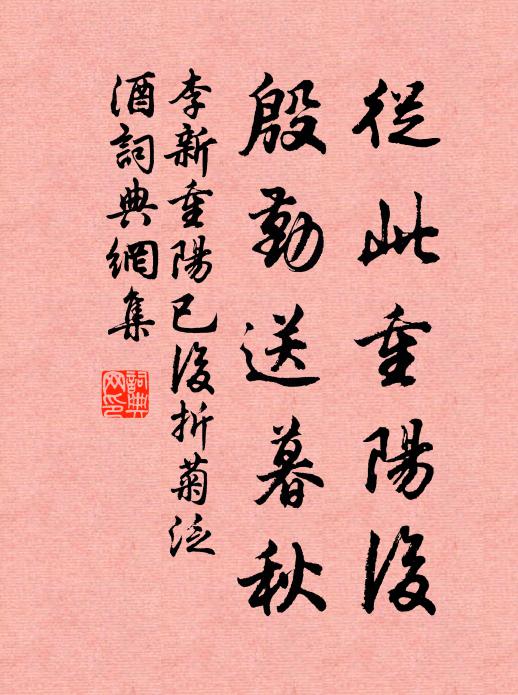 從此重陽後
殷勤送暮秋
李新重陽已後折菊泛
酒詞典網集
詞典
网印